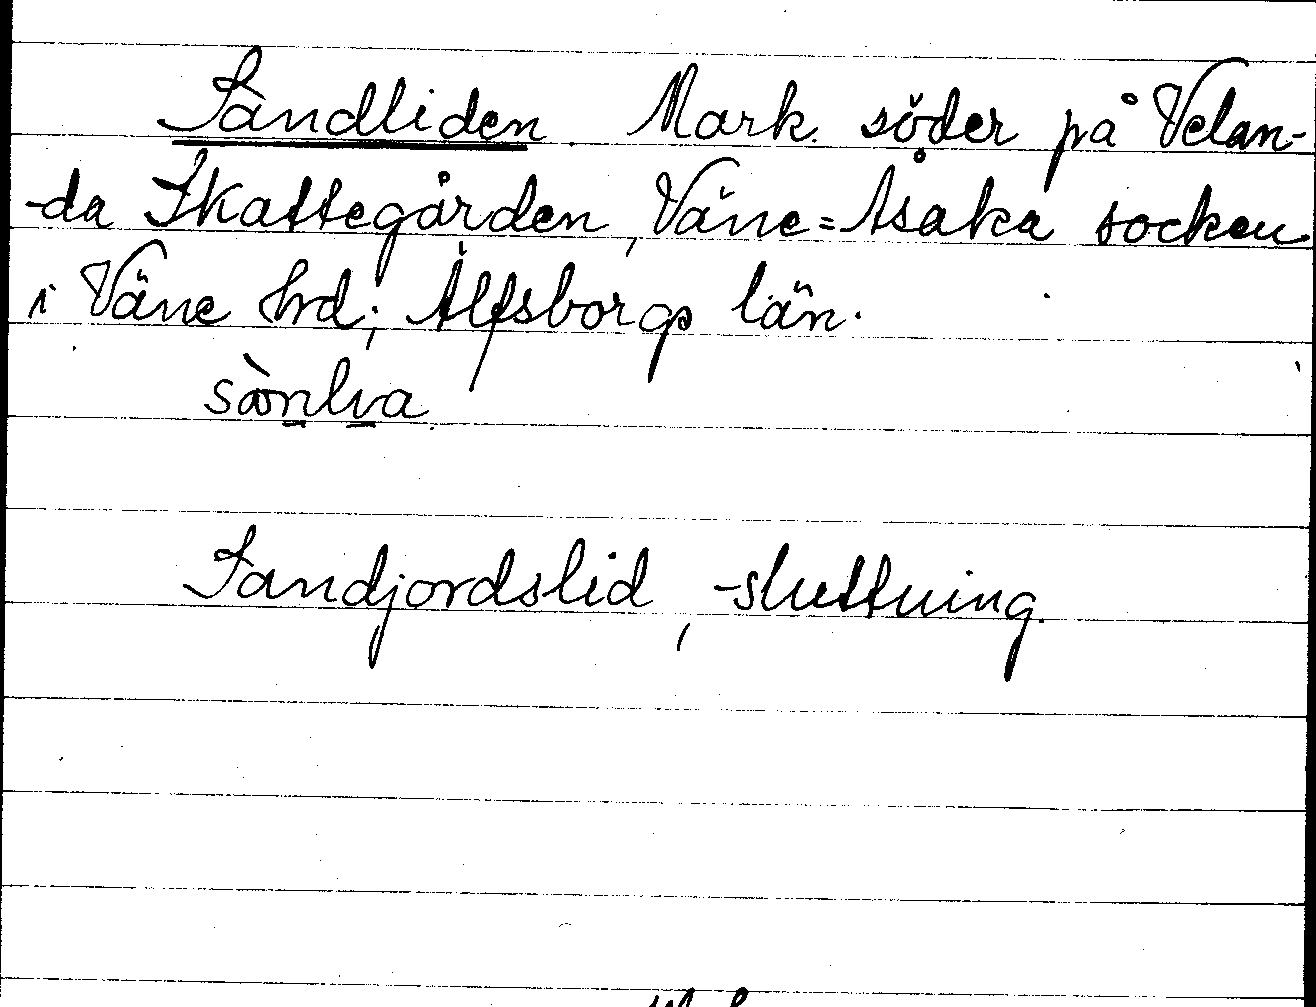 Sandliden. Mark. söder på Velan-
-da Skattegården, Väne=Åsaka socken
i Väne hrd; Älfsborgs län.
Sandjordslid, -sluttning.